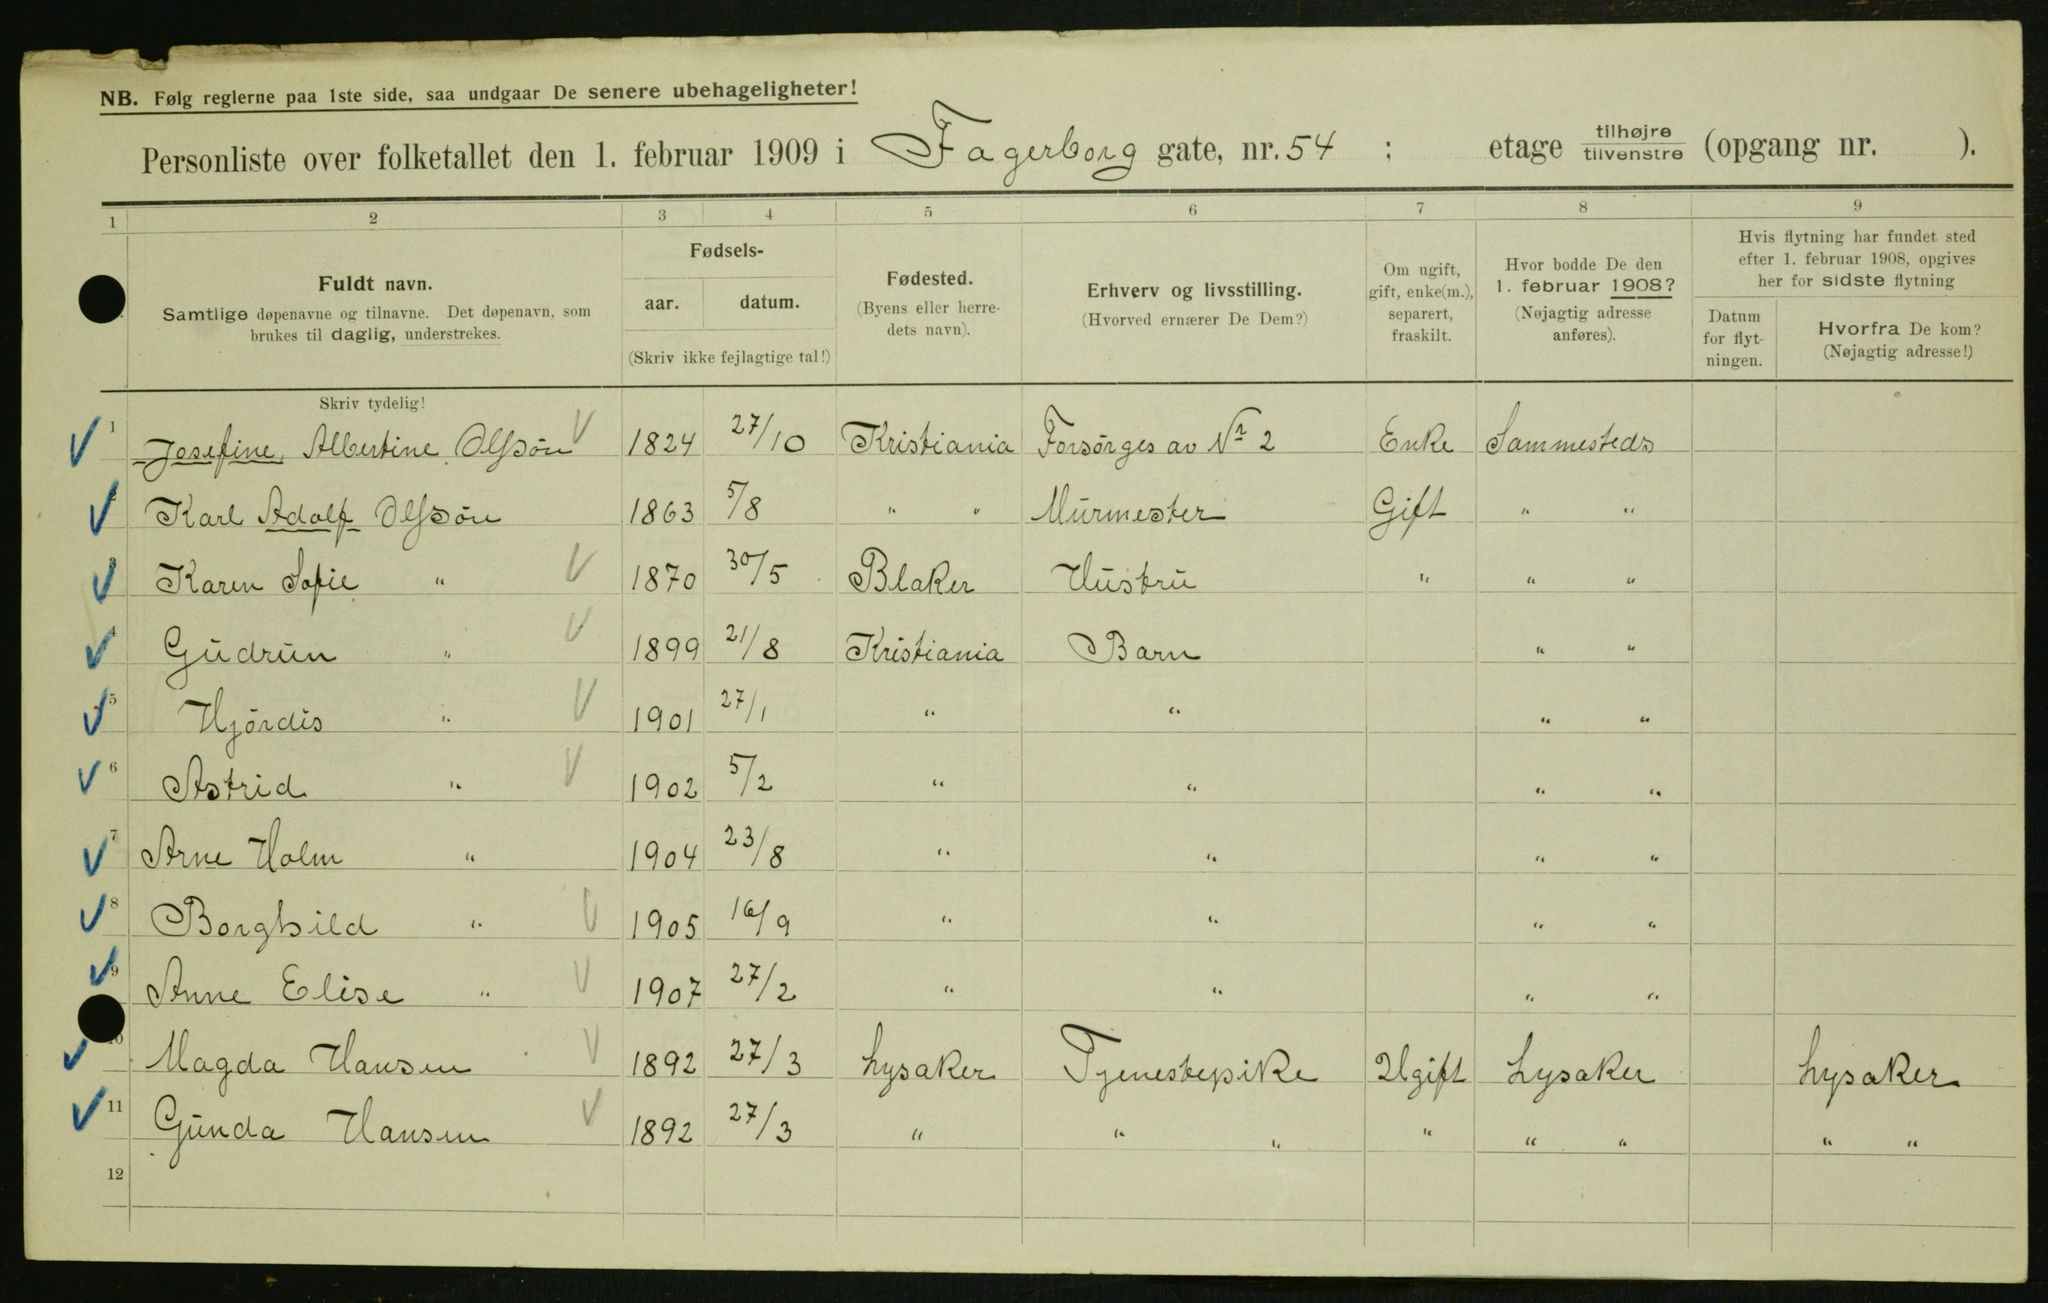 NB. Følg reglerne paa 1ste side, saa undgaar De senere ubehageligheter!
Personliste over folketallet den 1. februar 1909 i Fagerborg gate, nr. 54 ; etage tilhøjre/tilvenstre (opgang nr. ).
1 2 3 4 5 6 7 8 9
Fuldt navn.
Samtlige døpenavne og tilnavne. Det døpenavn, som
brukes til daglig, understrekes.
Fødsels-
aar. datum.
(Skriv ikke fejlagtige tal!)
Fødested.
(Byens eller herre-
dets navn).
Erhverv og livsstilling.
(Hvorved ernærer De Dem?)
Om ugift,
gift, enke(m.),
separert,
fraskilt.
Hvor bodde De den
1. februar 1908?
(Nøjagtig adresse
anføres).
Hvis flytning har fundet sted
efter 1. februar 1908, opgives
her for sidste flytning
Datum
for flyt-
ningen.
Hvorfra De kom?
(Nøjagtig adresse!)
Skriv tydelig!
1 Josefine Albertine Olssøn 1824 27/10 Kristiania Forsørges av Nr 2 Enke Sammesteds
2 Karl Adolf Olssøn 1863 5/8 " " Murmester Gift " "
3 Karen Sofie " 1870 30/5 Blaker Hustru " " "
4 Gudrun " 1899 21/8 Kristiania Barn " "
5 Hjørdis " 1901 27/1 " " " "
6 Astrid " 1902 5/2 " " " "
7 Arne Holm " 1904 23/8 " " " "
8 Borghild " 1905 16/9 " " " "
9 Anne Elise " 1907 27/2 " " " "
10 Magda Hansen 1892 27/3 Lysaker Tjenestepike Ugift Lysaker Lysaker
11 Gunda Hansen 1892 27/3 " " " " " " " "
12